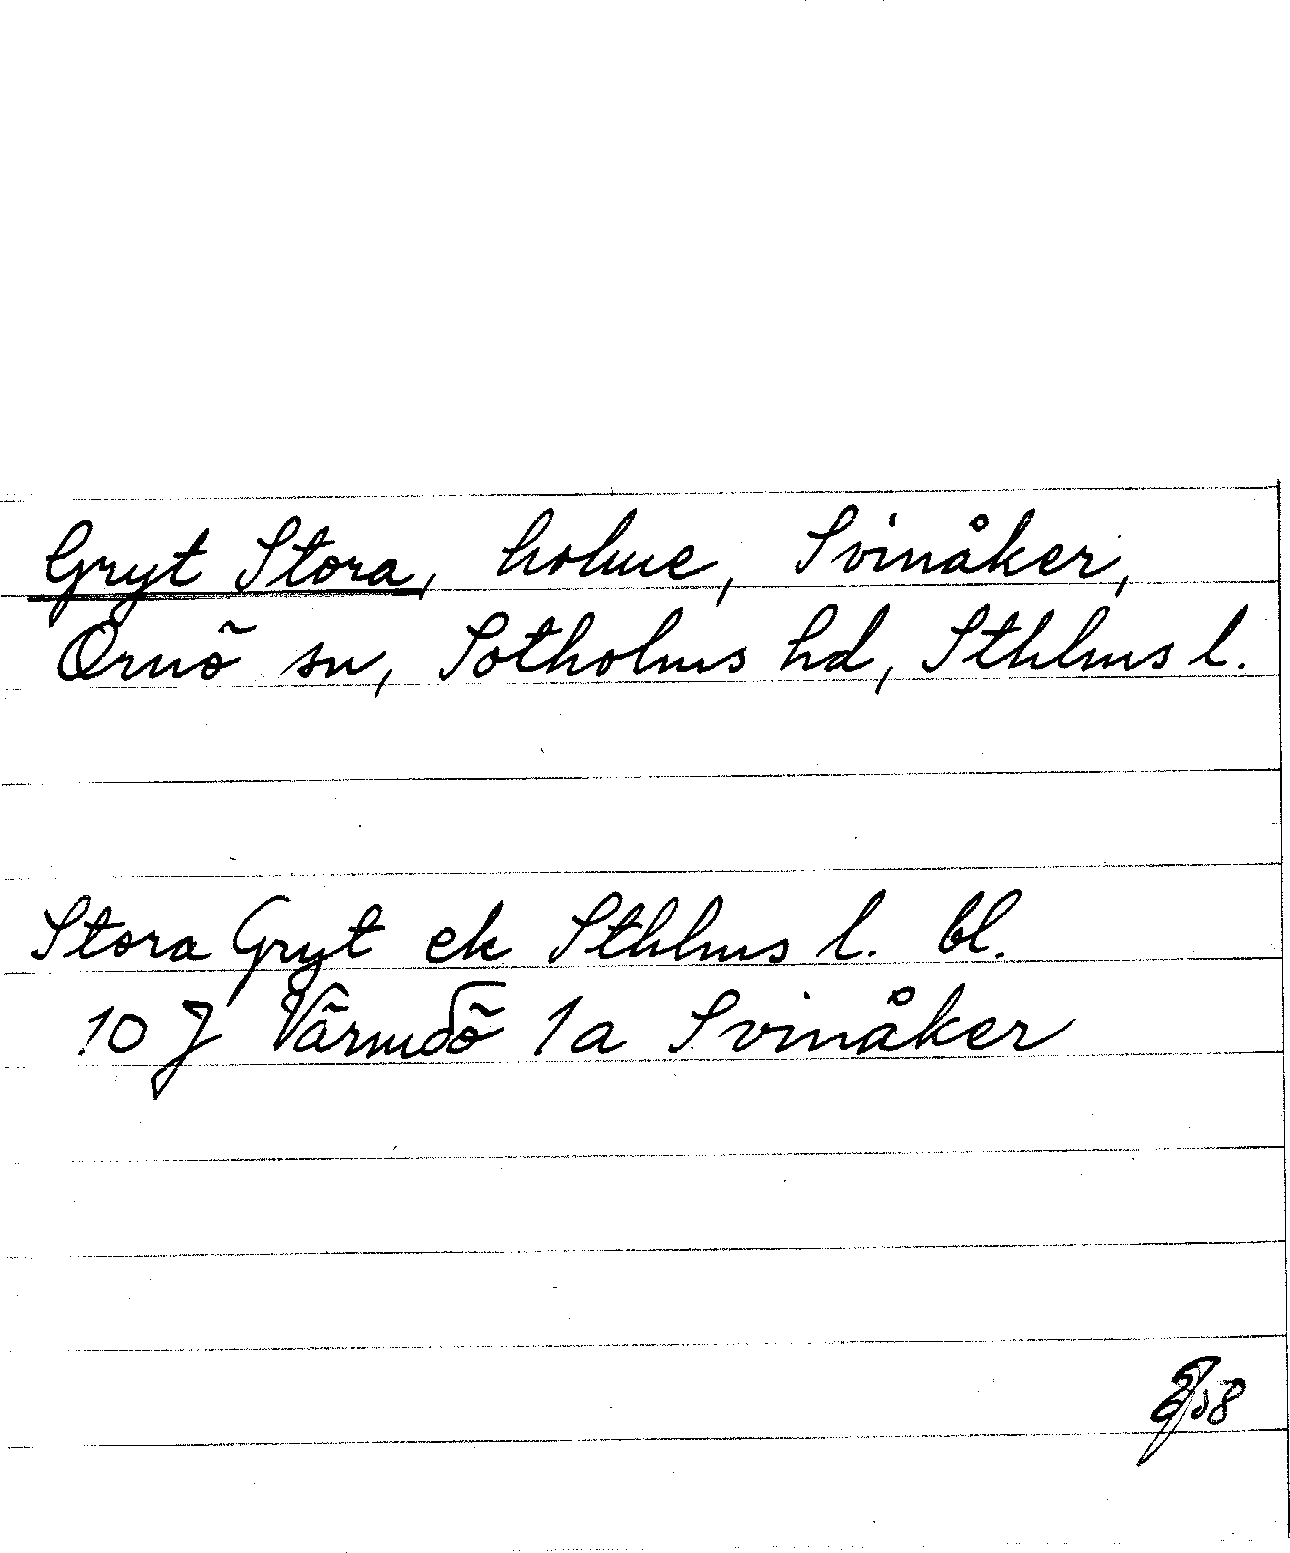 Gryt Stora, holme, Svinåker,
Ornö sn, Sotholms hd, Sthlms l.
Stora Gryt ek Sthlms l. bl.
10 J Värmdö 1a Svinåker
58